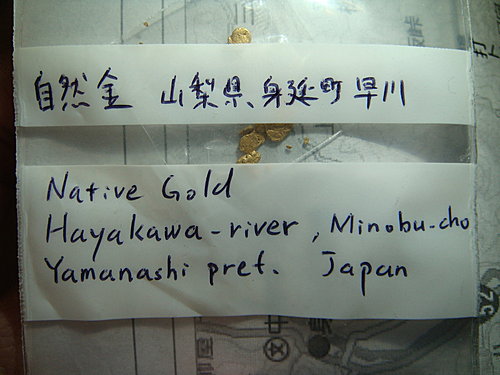 自然金 山梨県身延町早川
Native Gold
Hayakawa-river, Minobu-cho
Yamanashi pref. Japan